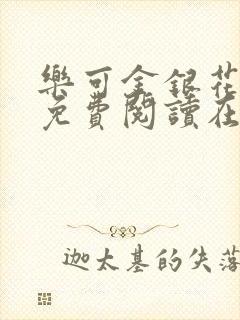 樂可金銀花
免費閱讀在
迦太基的失落